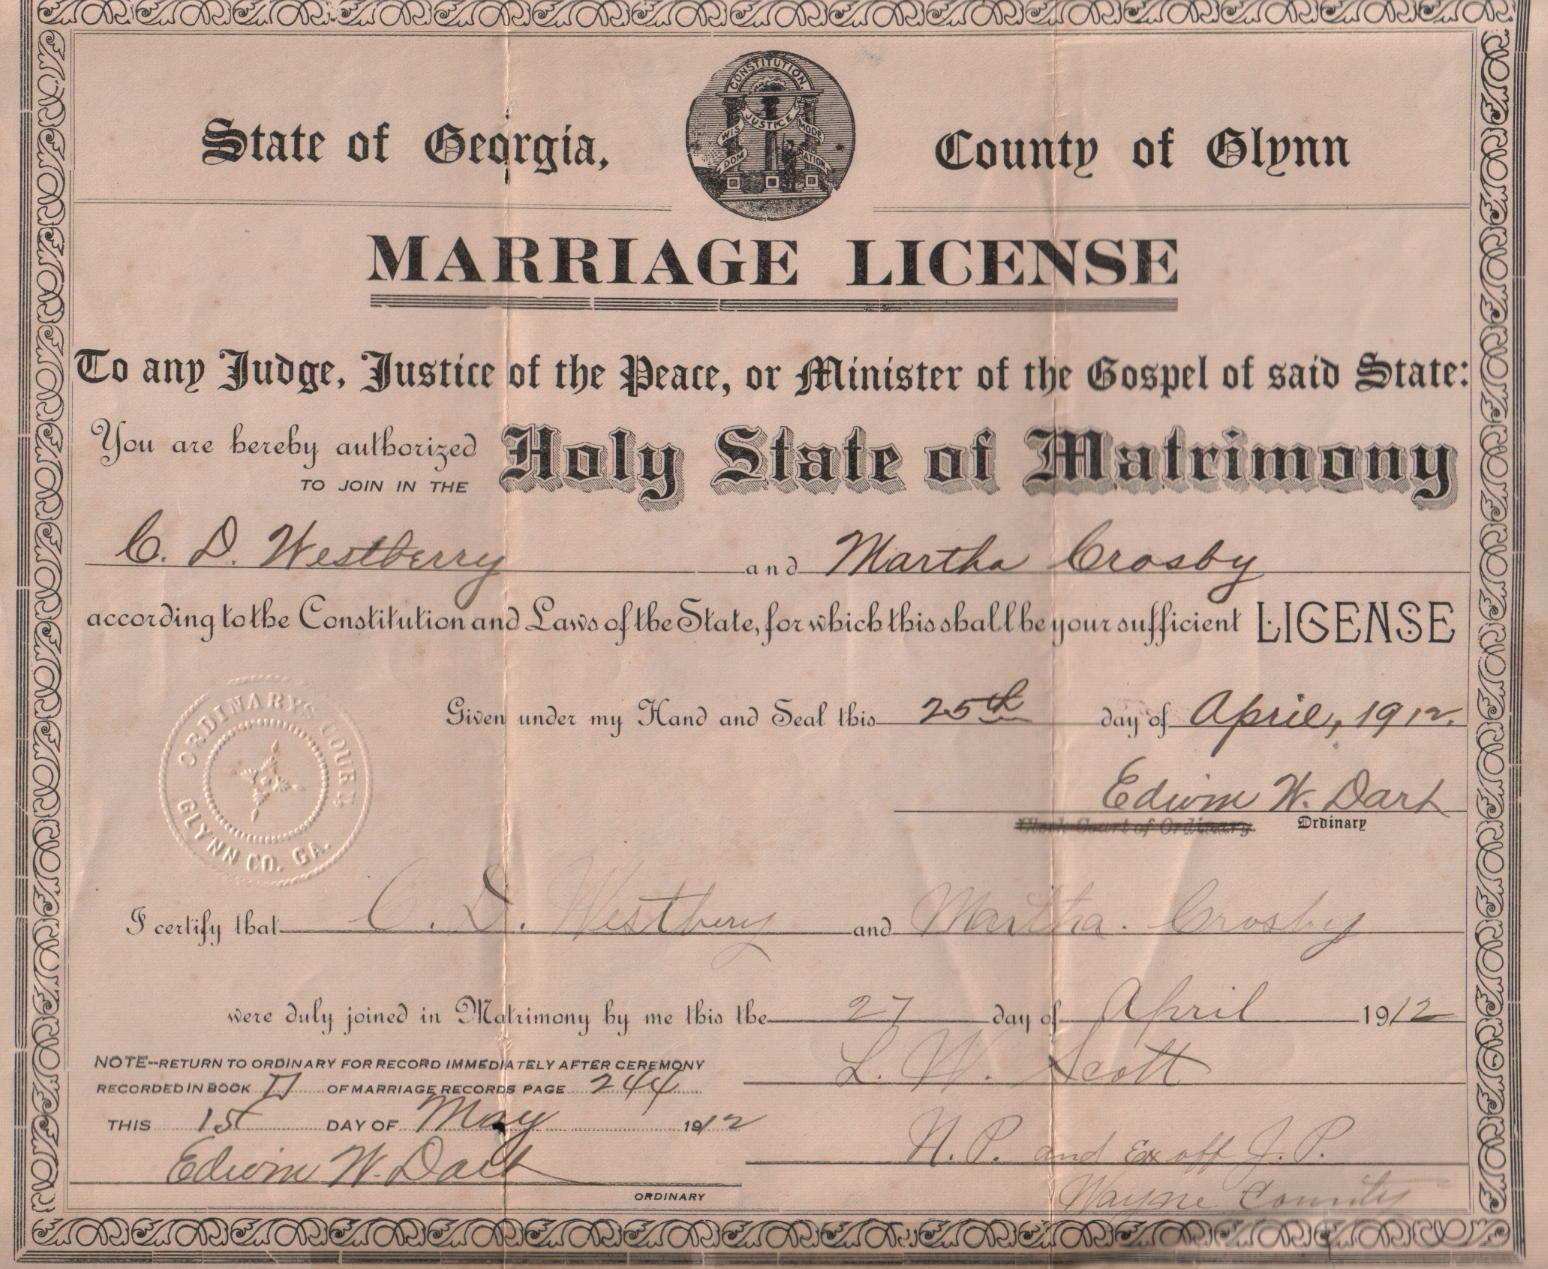 State of Georgia,
CONSTITUTION
JUSTICE
WIS
DOM
MODE
RATION
County of Glynn
MARRIAGE LICENSE
To any Judge, Justice of the Peace, or Minister of the Gospel of said State:
You are hereby authorized
TO JOIN IN THE
Holy State of Matrimony
C. D. Westberry and Martha Crosby
according to the Constitution and Laws of the State, for which this shall be your sufficient LICENSE
Given under my Hand and Seal this 25th day of April, 1912.
Edwin W. Dart
Clerk Court of Ordinary Ordinary
ORDINARY'S COURT
GLYNN CO. GA.
I certify that C. D. Westbery and Martha. Crosby
were duly joined in Matrimony by me this the 27 day of April 1912
L. W. Scott
N. P. and Ex off J. P.
Wayne County
NOTE--RETURN TO ORDINARY FOR RECORD IMMEDIATELY AFTER CEREMONY
RECORDED IN BOOK D OF MARRIAGE RECORDS PAGE 244
THIS 1st DAY OF May 1912
Edwin W. Dart
ORDINARY